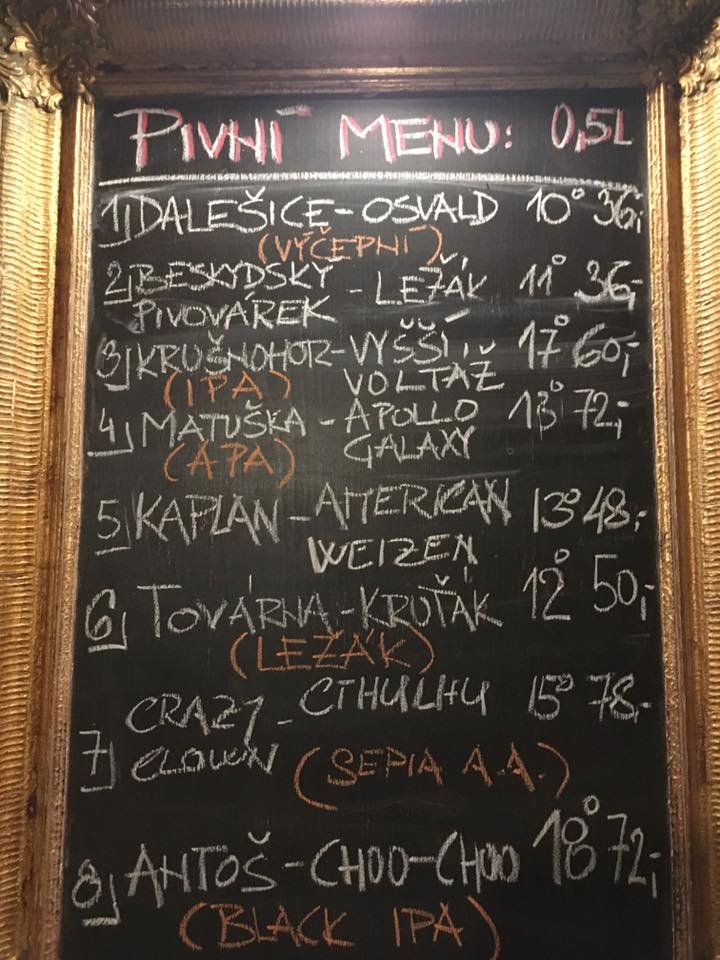 PIVNÍ MENU: 0,5L
1) DALEŠICE - OSVALD 10° 36,-
(VÝČEPNÍ)
2) BESKYDSKÝ - LEŽÁK 11° 36,-
PIVOVÁREK
3) KRUŠNOHOR - VYŠŠÍ 17° 60,-
(IPA) VOLTÁŽ
4) MATUŠKA - APOLLO 13° 72,-
(APA) GALAXY
5) KAPLAN - AMERICAN 13° 48,-
WEIZEN
6) TOVÁRNA - KRUŤÁK 12° 50,-
(LEŽÁK)
7) CRAZY - CTHULHU 15° 78,-
CLOWN (SEPIA A.A.)
8) ANTOŠ - CHOO-CHOO 18° 72,-
(BLACK IPA)